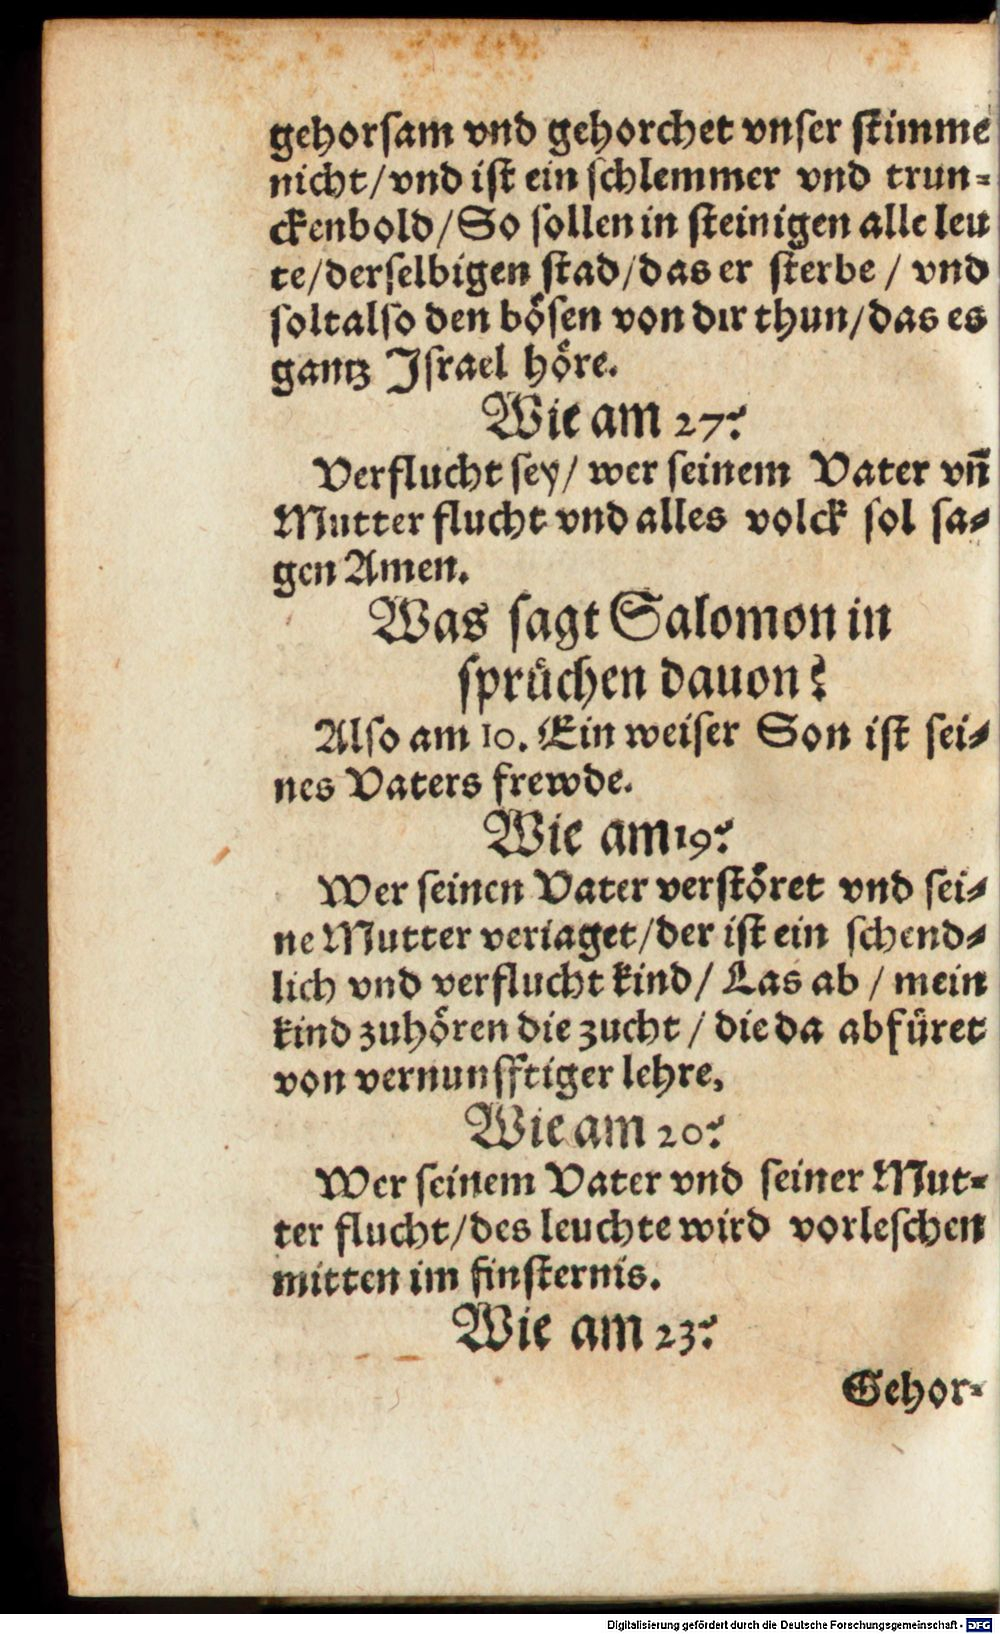 gehorſam vnd gehorchet vnſer ſtimme
nicht/vnd iſt ein ſchlemmer vnd trun⸗
ckenbold/So ſollen in ſteinigen alle leu
te/derſelbigen ſtad/das er ſterbe / vnd
ſolt alſo den böſen von dir thun/das es
gantz Iſrael höre.
Wie am 27?
Verflucht ſey/ wer ſeinem Vater vñ
Mutter flucht vnd alles volck ſol ſa⸗
gen Amen.
Was ſagt Salomon in
ſprüchen dauon?
Alſo am 10. Ein weiſer Son iſt ſei⸗
nes Vaters frewde.
Wie am 19?
Wer ſeinen Vater verſtöret vnd ſei⸗
ne Mutter veriaget/der iſt ein ſchend⸗
lich vnd verflucht kind/ Las ab / mein
kind zuhören die zucht / die da abfüret
von vernunfftiger lehre,
Wie am 20?
Wer ſeinem Vater vnd ſeiner Mut⸗
ter flucht/des leuchte wird vorleſchen
mitten im finſternis.
Wie am 23?
Gehor⸗
Digitalisierung gefördert durch die Deutsche Forschungsgemeinschaft - DFG